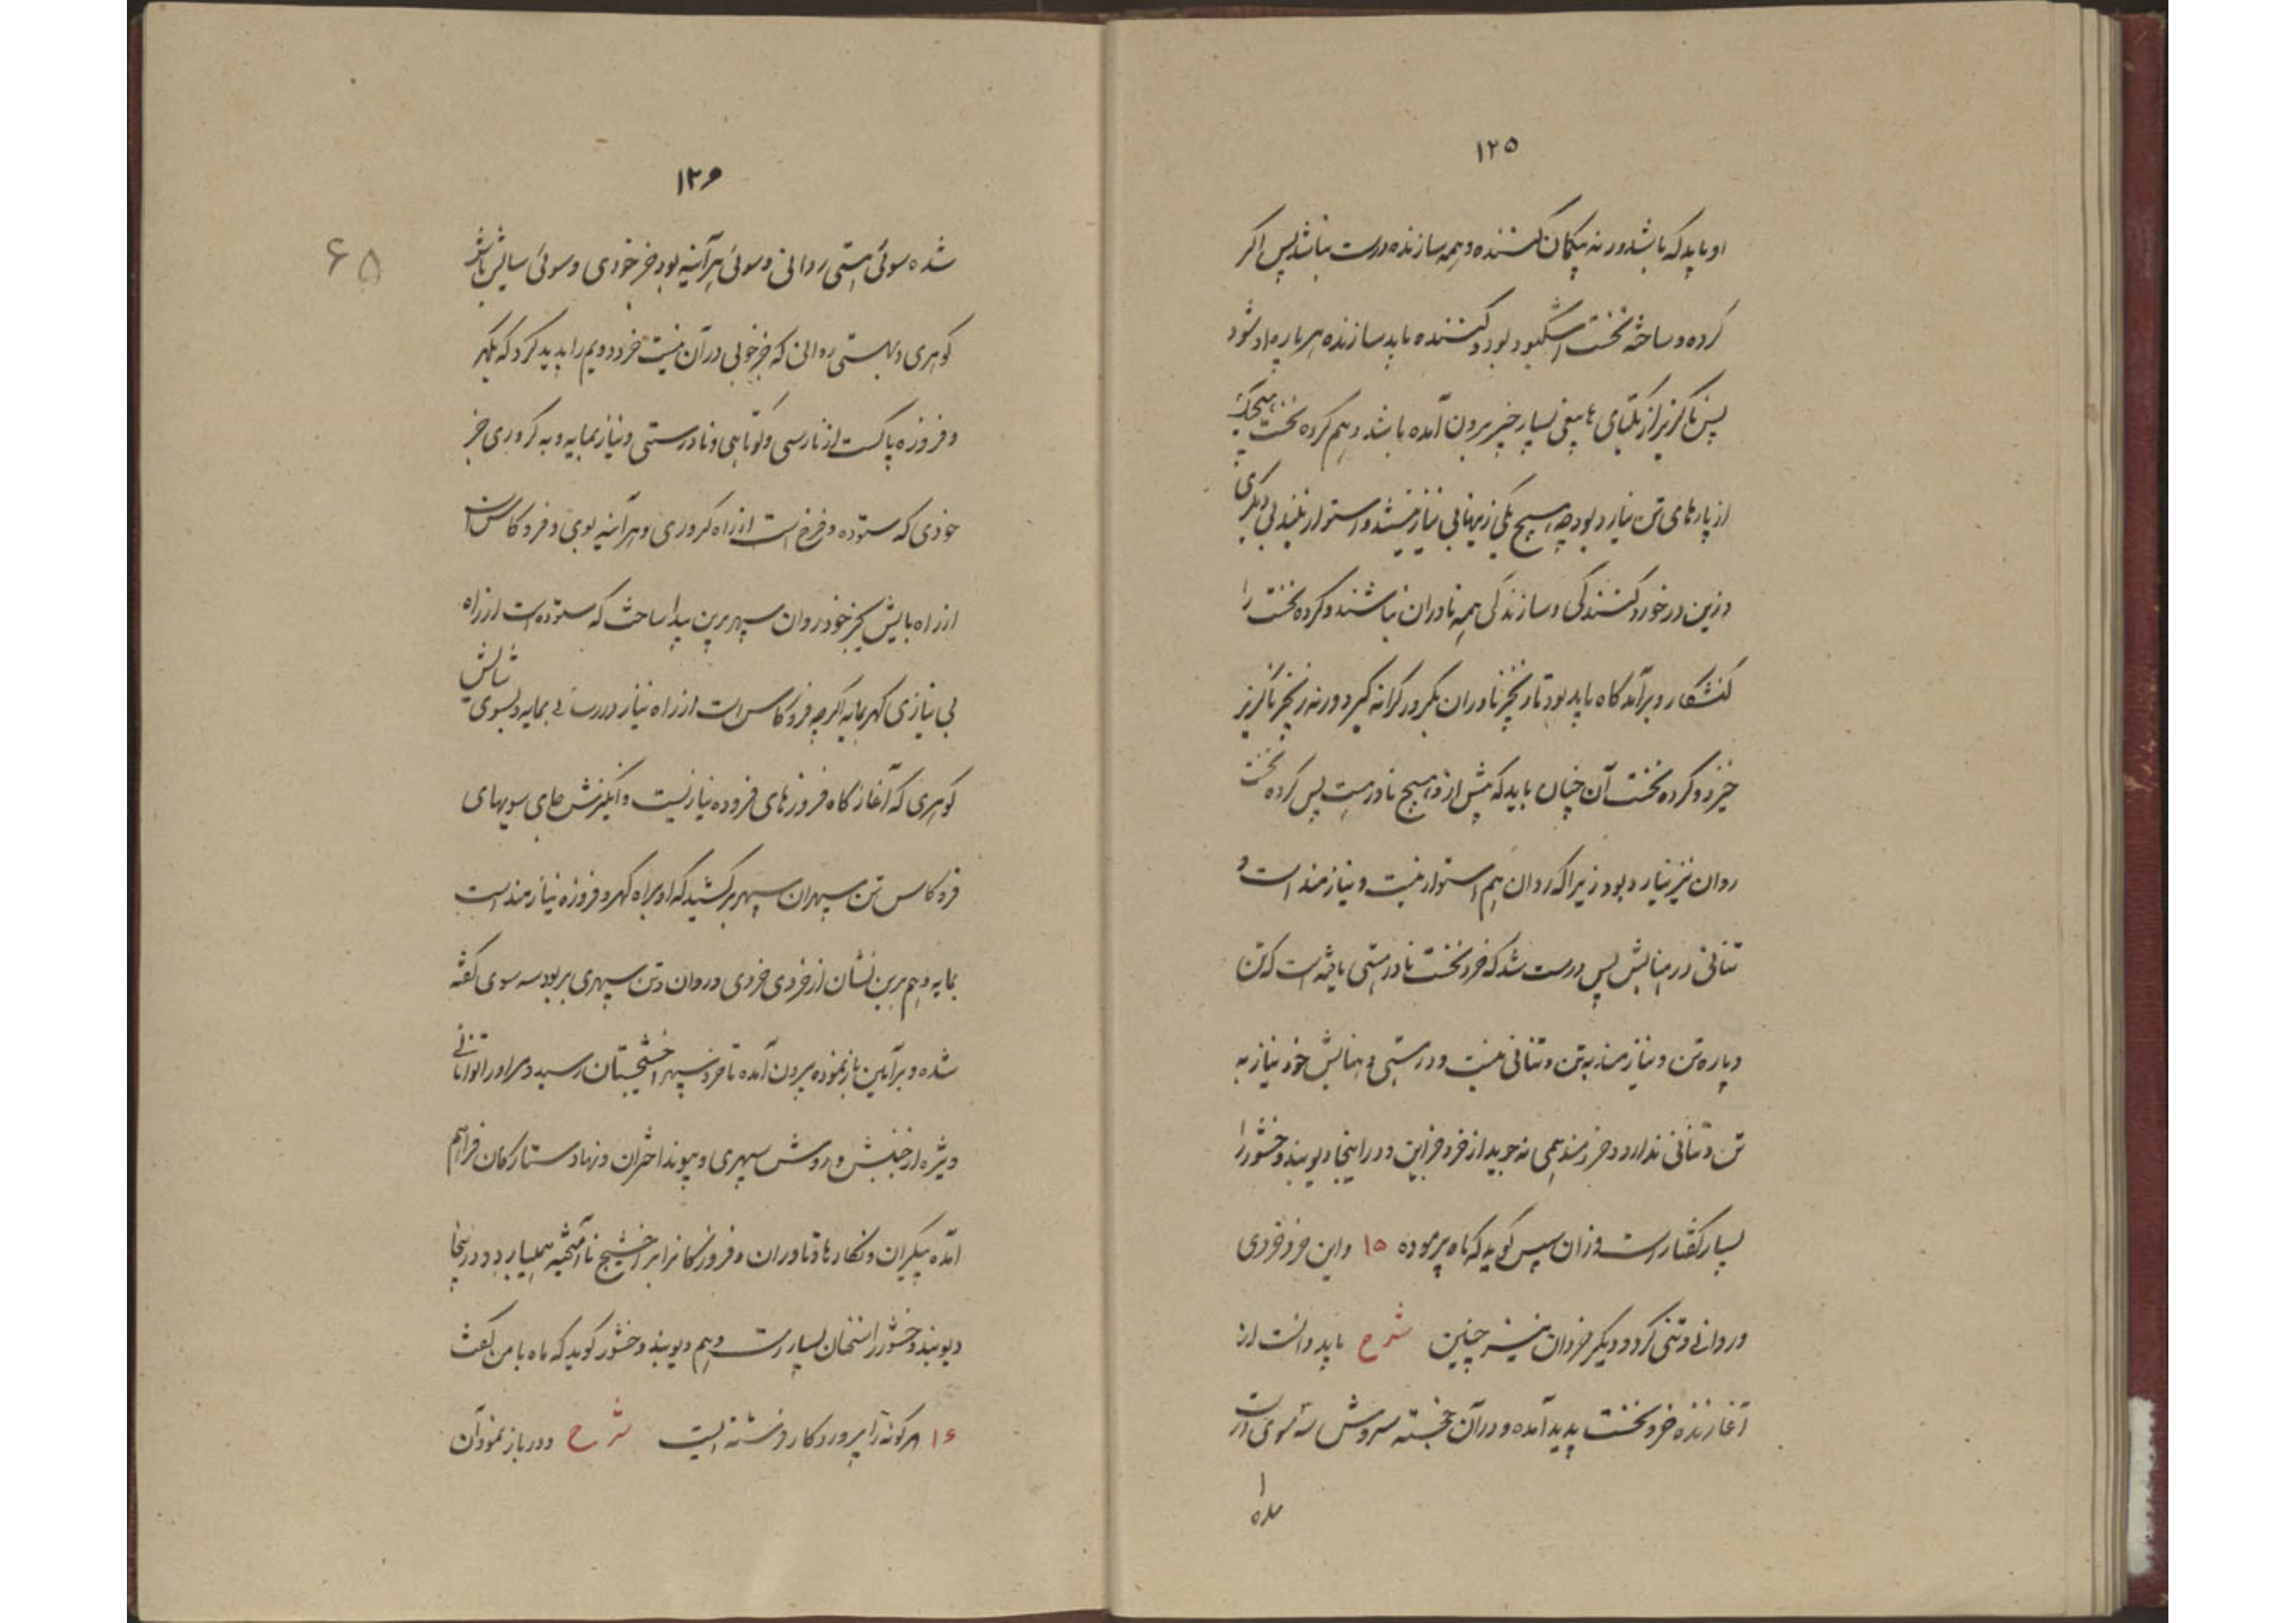 ۱۲۵
او باید که باشد ورنه بیگمان کننده و همه سازنده درست نباشد پس اگر
کرده و ساخته نخست اشکیود بود کننده باید سازنده هر پاره او شود
پس ناگزیر از یکتای بسیار چیز بیرون آمده باشد و هم کرده نخست
از پارهای تن نیارد بود چه هیچ یکی زینها بی نیاز نیستند و استوار نیند بی دیگری
وزین درخورد کنندگی و سازندگی همه ناوران نباشند و کرده نخست را
کنشگار و برآمدگاه باید بود تا زنجیر ناوران بکرور کرانه گیرد ورنه زنجیر ناگزیر
خیزد و کرده نخست آن چنان باید که پیش ازو هیچ نا ورست پس کرده نخست
روان نیز نیارد بود زیرا که روان هم استوار نیست و نیازمند است و
تنانی در هنایش پس درست شد که خرد نخست ناور هستی یافته است که تن
و پاره تن و نیازمند به تن و تنانی نیست و در هستی و هنایش خود نیاز به
تن و تنانی ندارد و خردمند همی نه جوید از خرد خز این و دراینجا دیوبند وخشور را
بسیار گفتار است وزان سپس گوید که ماه پرموده ۱۵ و این خرد خردی
و روانی و تنی کرد و دیگر خردان نیز چنین شرح باید دانست از
آغازنده خرد نخست پدید آمده و در آن خجسته سروش سه سوی است
۱۲۶
۶۵
شده سوئی هستی روانی و سوئی هر آئینه بود خز خودی و سوئی شایش باش
گوهری و بهستی روانی که جز خوبی در آن نیست خرد دویم را پدید کرد که بگهر
و فروزه پاکست از نارسی و کوتاهی و نادرستی و نیاز بمایه و به کروری خز
خودی که ستوده و فرخ است از راه کروری و هر آئینه بوی و فروکاس است
از راه بایش بجز خود روان سپهر برین پیدا ساخت که ستوده است از راه
بی نیازی گهر بمایه اگرچه فروکاس است از راه نیاز در رسائی بمایه و بسوی شایش
گوهری که آغازگاه فروزهای فروده نیاز نیست و انگیزش جای سویهای
فروکاس تن سپهران سپهر برکشید که او براه گهر و فروزه نیازمند است
بمایه و هم برین نشان از خردی خردی و روان و تن سپهری بر بود سه سوی گفته
شده و برآئین باز نموده بیرون آمده تا خرد سپهر اخشیجستان رسید و مر او را توانائی
ویژه از جنبش و روش سپهری و پیوند اختران و نهاد ستارگان فراهم
آمده پیکران و نگارها و ناوران و فروزگانرا بر اخشیج نا آمیخته همیبارد و دراینجا
دیوبند وخشور را سخنان بسیار است و هم دیوبند وخشور گوید که ماه با من گفت
۱۶ هر گونه را پروردگار فرشته ایست شرح و در باز نمودن